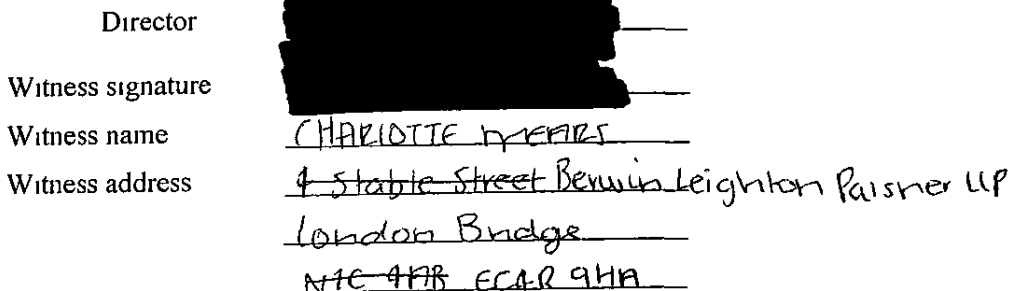 Director
Witness signature
Witness name CHARLOTTE MEARS
Witness address 4 Stable Street Berwin Leighton Paisner LLP
London Bridge
N1C 4AB EC4R 9HA